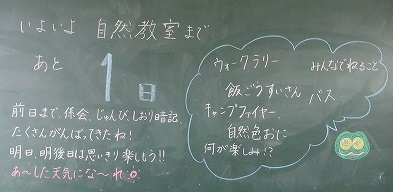 いよいよ 自然教室まで
あと 1日
前日まで、係会、じゅんび、しおり暗記、
たくさんがんばってきたね!
明日、明後日は思いきり楽しもう!!
あ〜した天気にな〜れ
ウォークラリー
みんなでねること
飯ごうすいさん
バス
キャンプファイヤー
自然色おに
何が楽しみ!?